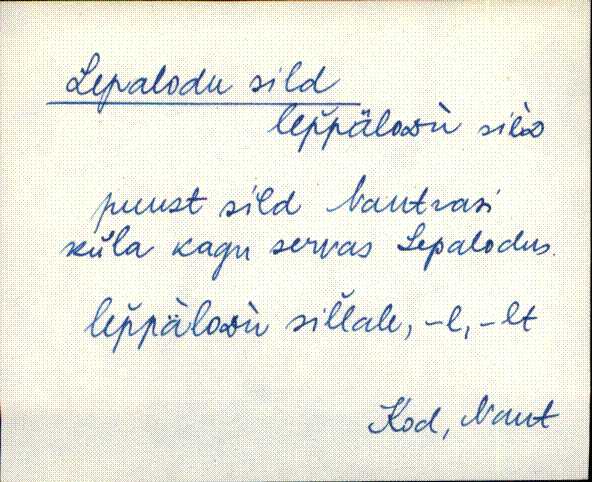 Lepalodu sild
lep̆päloᴅù silᴅ
puust sild Nautrasi
küla kagu servas Lepalodus.
lep̆päloᴅù sil̆lale, -l, -lt
Kod, Naut